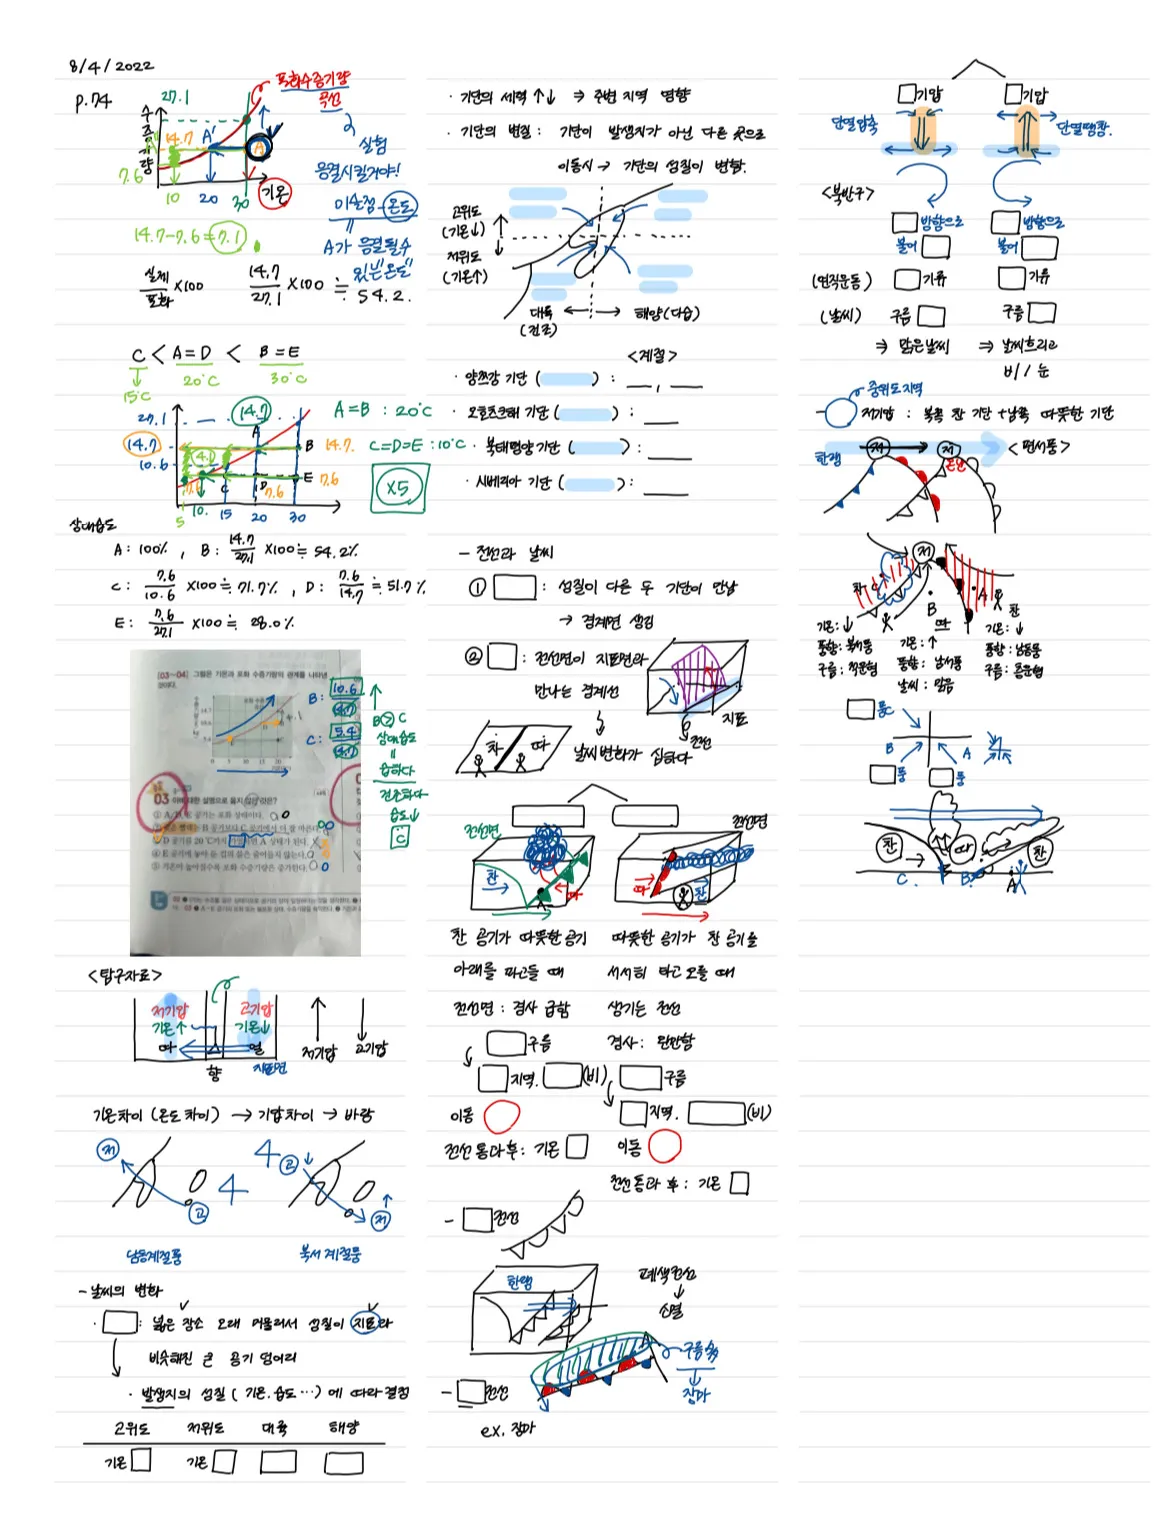 8/4/2022
P.74
27.1
포화수증기량
곡선
수증기량
14.7
A'
A
7.6
10 20 30 기온
실험
응결시킬거야!
이슬점-온도
A가 응결될 수
있는"온도"
14.7-7.6=7.1
실제/포화 ×100
14.7/27.1 ×100 ≒ 54.2.
C < A=D < B=E
15℃ 20℃ 30℃
27.1
14.7
A
14.7
B 14.7.
10.6
7.6 C D 7.6 E 7.6
5 10. 15 20 30
A=B : 20℃
C=D=E :10℃
×5
상대습도
A: 100% , B: 14.7/27.1 ×100≒ 54.2%
C: 7.6/10.6 ×100≒ 71.7% , D: 7.6/14.7 ≒ 51.7%
E: 7.6/27.1 ×100≒ 28.0%
[03~04] 그림은 기온과 포화 수증기량의 관계를 나타낸
것이다.
B: 10.6/14.7
C: 5.4/14.7
B>C
상대습도
=
습하다
건조하다
습도↓
C
03 이에 대한 설명으로 옳지 않은 것은?
<탐구자료>
저기압 고기압
기온↑ 기온↓
따 열
향 지표면
저기압 고기압
기온차이 (온도차이) → 기압차이 → 바람
저 고
고 저
남동계절풍 북서계절풍
- 날씨의 변화
· □: 넓은 장소 오래 머물러서 성질이 지표와
비슷해진 큰 공기 덩어리
· 발생지의 성질 (기온,습도…)에 따라 결정
고위도 저위도 대륙 해양
기온□ 기온□ □ □
· 기단의 세력 ↑↓ ⇒ 주변 지역 영향
· 기단의 변질 : 기단이 발생지가 아닌 다른 곳으로
이동시 → 기단의 성질이 변함.
고위도
(기온↓)
저위도
(기온↑)
대륙 ← → 해양(다습)
(건조)
<계절>
· 양쯔강 기단 ( ) : __ , __
· 오호츠크해 기단 ( ) : __
· 북태평양 기단 ( ) : __
· 시베리아 기단 ( ) : __
- 전선과 날씨
① □ : 성질이 다른 두 기단이 만남
→ 경계면 생김
② □ : 전선면이 지표면과
만나는 경계선
지표
전선
차 따
날씨변화가 심하다
전선면 전선면
찬 따
따 찬
찬 공기가 따뜻한 공기
아래를 파고들 때
전선면 : 경사 급함
□구름
□지역. □(비)
이동 ○
전선 통과 후 : 기온 □
따뜻한 공기가 찬 공기를
서서히 타고 오를 때
생기는 전선
경사 : 완만함
□구름
□지역. □(비)
이동 ○
전선통과 후 : 기온 □
- □전선
한랭
폐색전선
↓
소멸
구름多
↓
장마
- □전선
ex. 장마
□기압 □기압
단열압축 단열팽창.
<북반구>
□방향으로 □방향으로
불어□ 불어□
(연직운동) □기류 □기류
(날씨) 구름□ 구름□
⇒ 맑은날씨 ⇒ 날씨흐리고
비/눈
중위도지역
○저기압 : 북쪽 찬 기단 + 남쪽 따뜻한 기단
한랭 저 저 온난 <편서풍>
저
찬 C B 따 A 찬
기온:↓
풍향: 북서풍
구름: 적운형
기온:↑
풍향: 남서풍
날씨: 맑음
기온:↓
풍향: 남동풍
구름: 층운형
□풍
B A
□풍 □풍
찬 따 찬
C. B. A